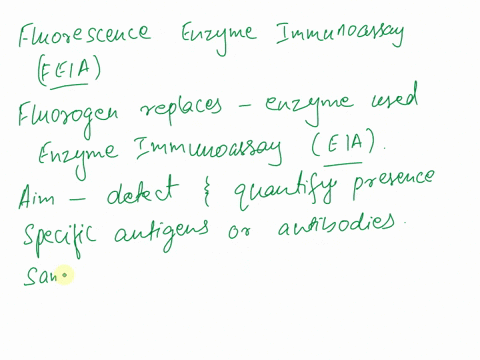 Fluorescence Enzyme Immunoassay
(FEIA)
Fluorogen replaces - enzyme used
Enzyme Immunoassay (EIA).
Aim - detect & quantify presence
Specific antigens or antibodies.
Sam